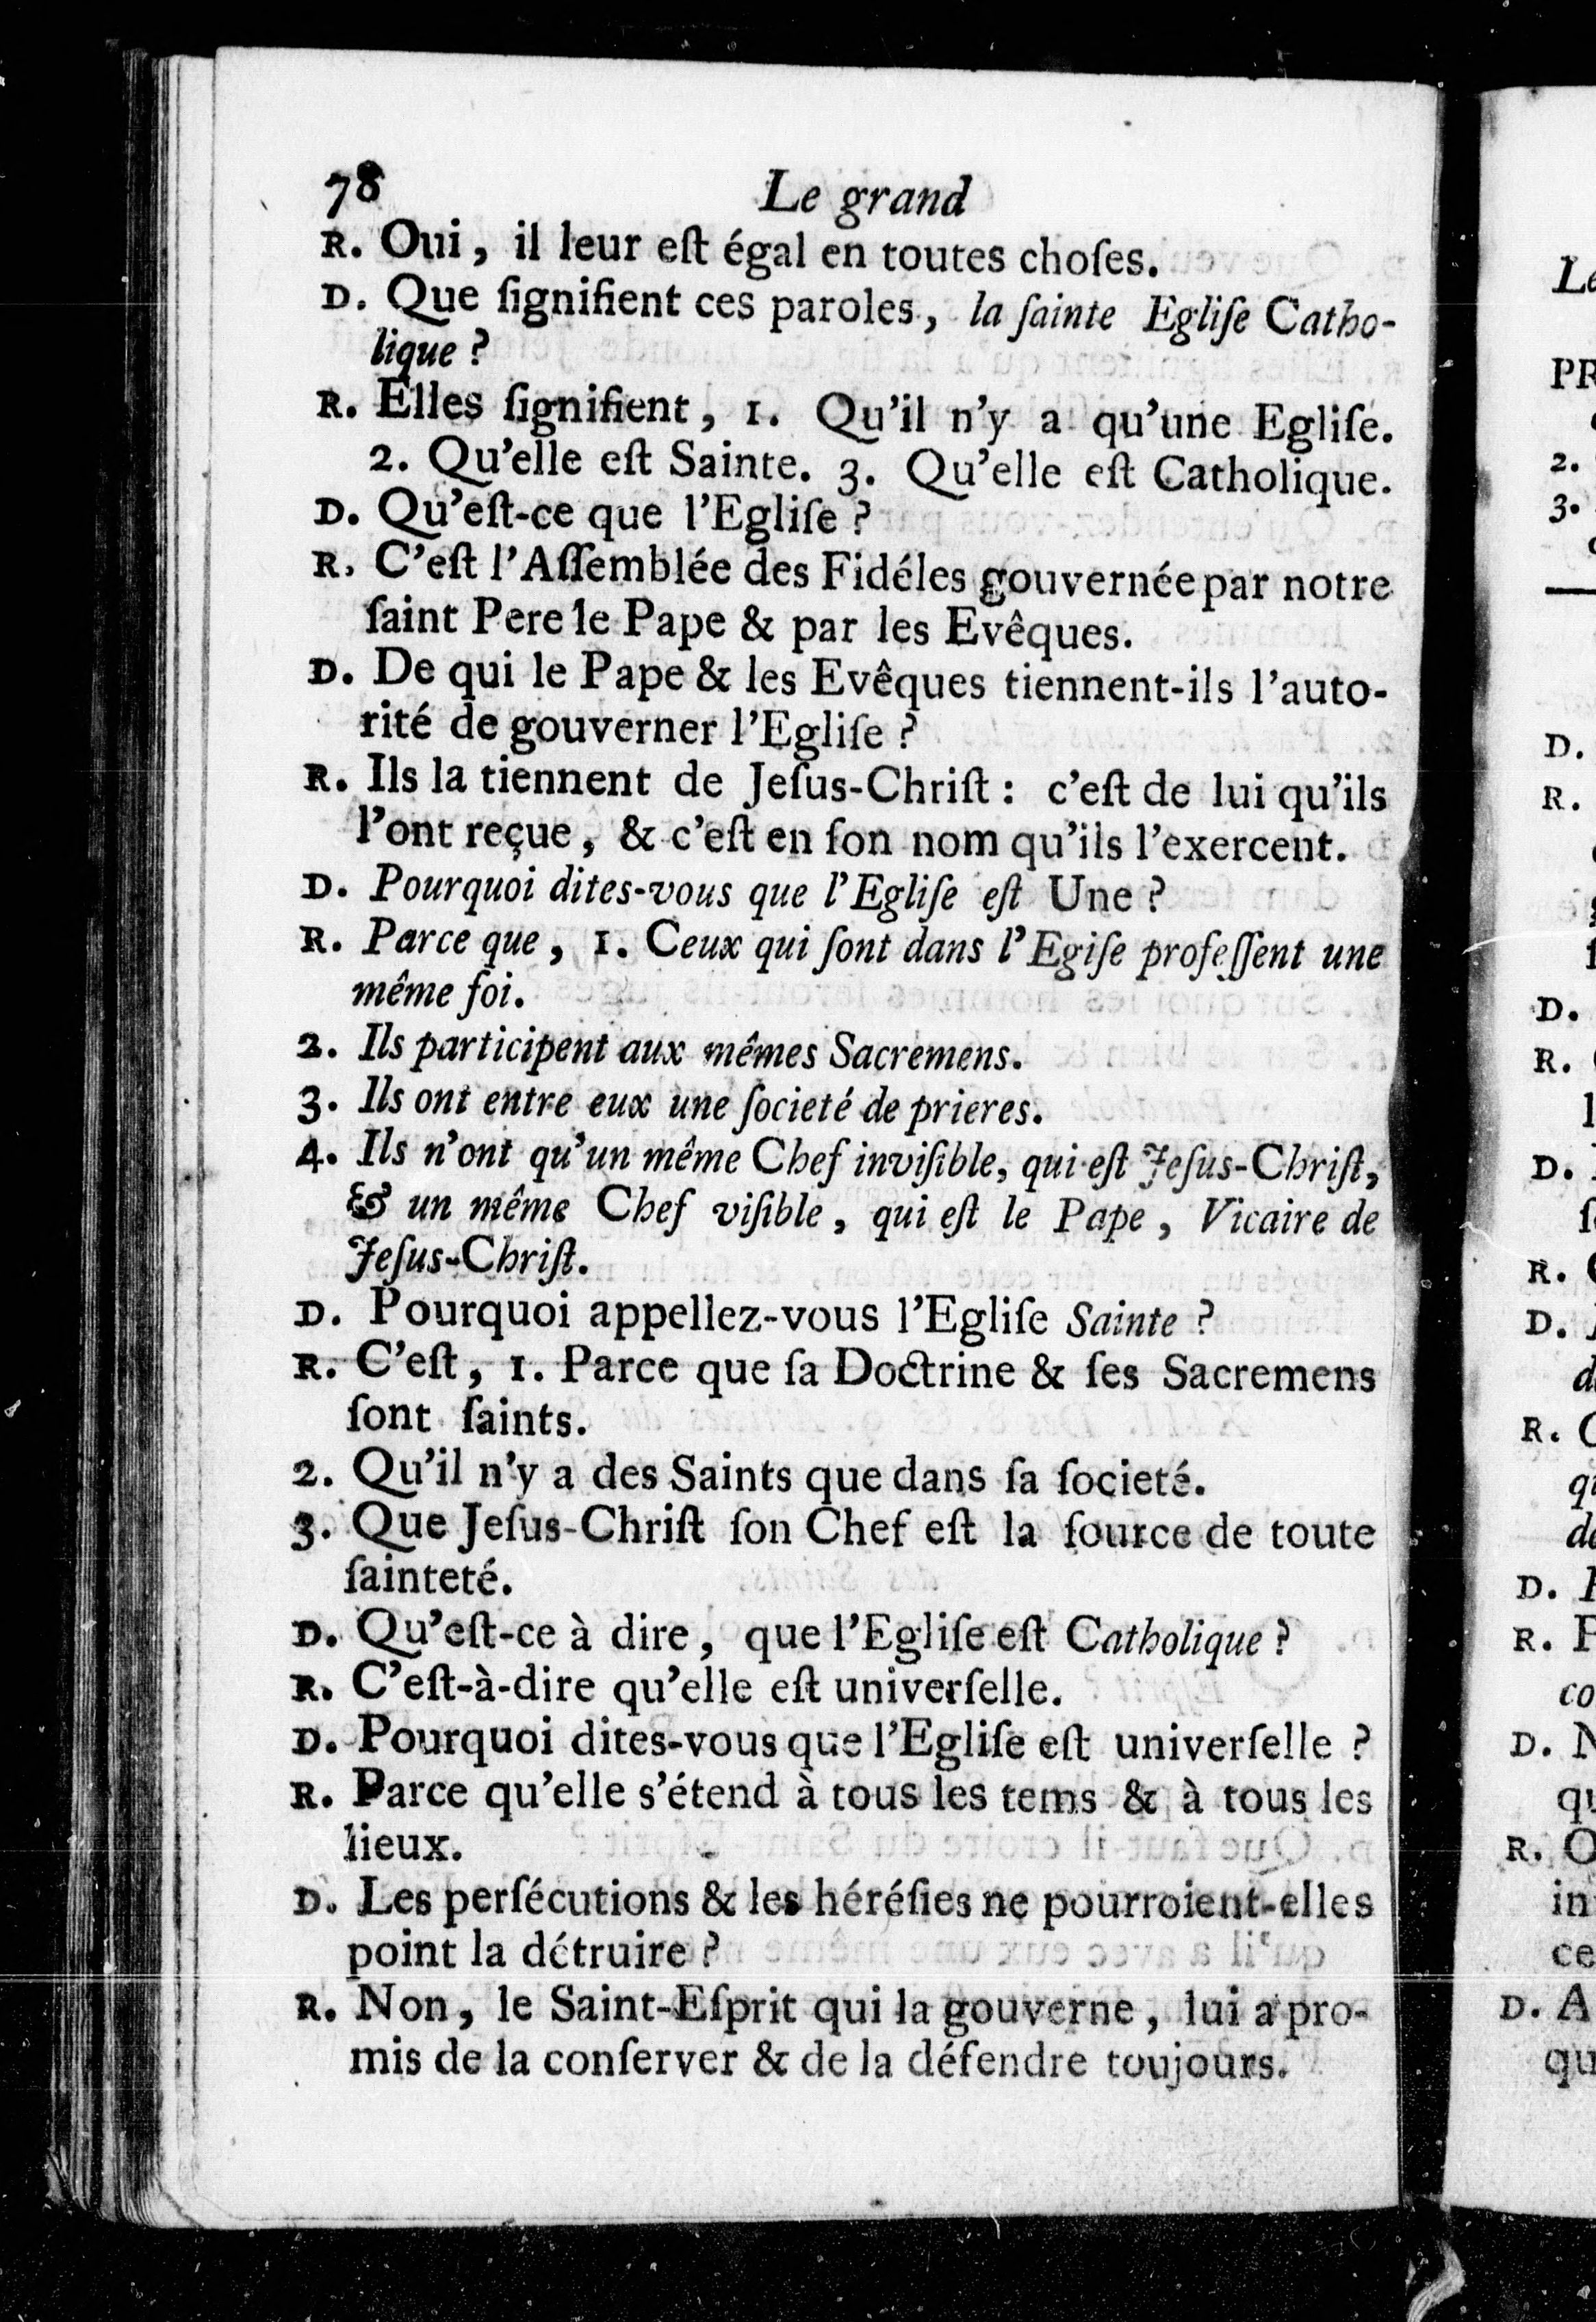 78 Le grand
R. Oui, il leur eſt égal en toutes choſes.
D. Que ſignifient ces paroles, la ſainte Egliſe Catho-
lique ?
R. Elles ſignifient, 1. Qu'il n'y a qu'une Egliſe.
2. Qu'elle eſt Sainte. 3. Qu'elle eſt Catholique.
D. Qu'eſt-ce que l'Egliſe ?
R. C'eſt l'Aſſemblée des Fidéles gouvernée par notre
ſaint Pere le Pape & par les Evêques.
D. De qui le Pape & les Evêques tiennent-ils l'auto-
rité de gouverner l'Egliſe ?
R. Ils la tiennent de Jeſus-Chriſt : c'eſt de lui qu'ils
l'ont reçue, & c'eſt en ſon nom qu'ils l'exercent.
D. Pourquoi dites-vous que l'Egliſe eſt Une ?
R. Parce que, 1. Ceux qui ſont dans l'Egiſe profeſſent une
même foi.
2. Ils participent aux mêmes Sacremens.
3. Ils ont entre eux une ſocieté de prieres.
4. Ils n'ont qu'un même Chef inviſible, qui eſt Jeſus-Chriſt,
& un même Chef viſible, qui eſt le Pape, Vicaire de
Jeſus-Chriſt.
D. Pourquoi appellez-vous l'Egliſe Sainte ?
R. C'eſt, 1. Parce que ſa Doctrine & ſes Sacremens
ſont ſaints.
2. Qu'il n'y a des Saints que dans ſa ſocieté.
3. Que Jeſus-Chriſt ſon Chef eſt la ſource de toute
ſainteté.
D. Qu'eſt-ce à dire, que l'Egliſe eſt Catholique ?
R. C'eſt-à-dire qu'elle eſt univerſelle.
D. Pourquoi dites-vous que l'Egliſe eſt univerſelle ?
R. Parce qu'elle s'étend à tous les tems & à tous les
lieux.
D. Les perſécutions & les héréſies ne pourroient-elles
point la détruire ?
R. Non, le Saint-Eſprit qui la gouverne, lui a pro-
mis de la conſerver & de la défendre toujours.